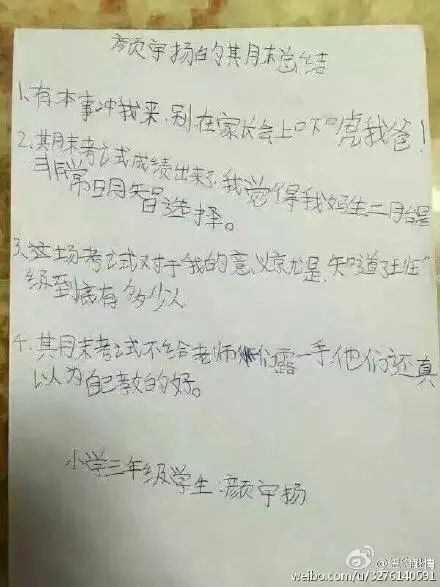 颜宇扬的其月末总结
1.有本事冲我来,别在家长会上吓唬我爸!
2.其月末考试成绩出来了,我觉得我妈生二胎是
非常明智日选择。
3.这场考试对于我的意义就是,知道了班
级到底有多少人
4.其月末考试不给老师们露一手,他们还真
以为自己教的好。
小学三年级学生:颜宇扬
weibo.com/u/3276140591